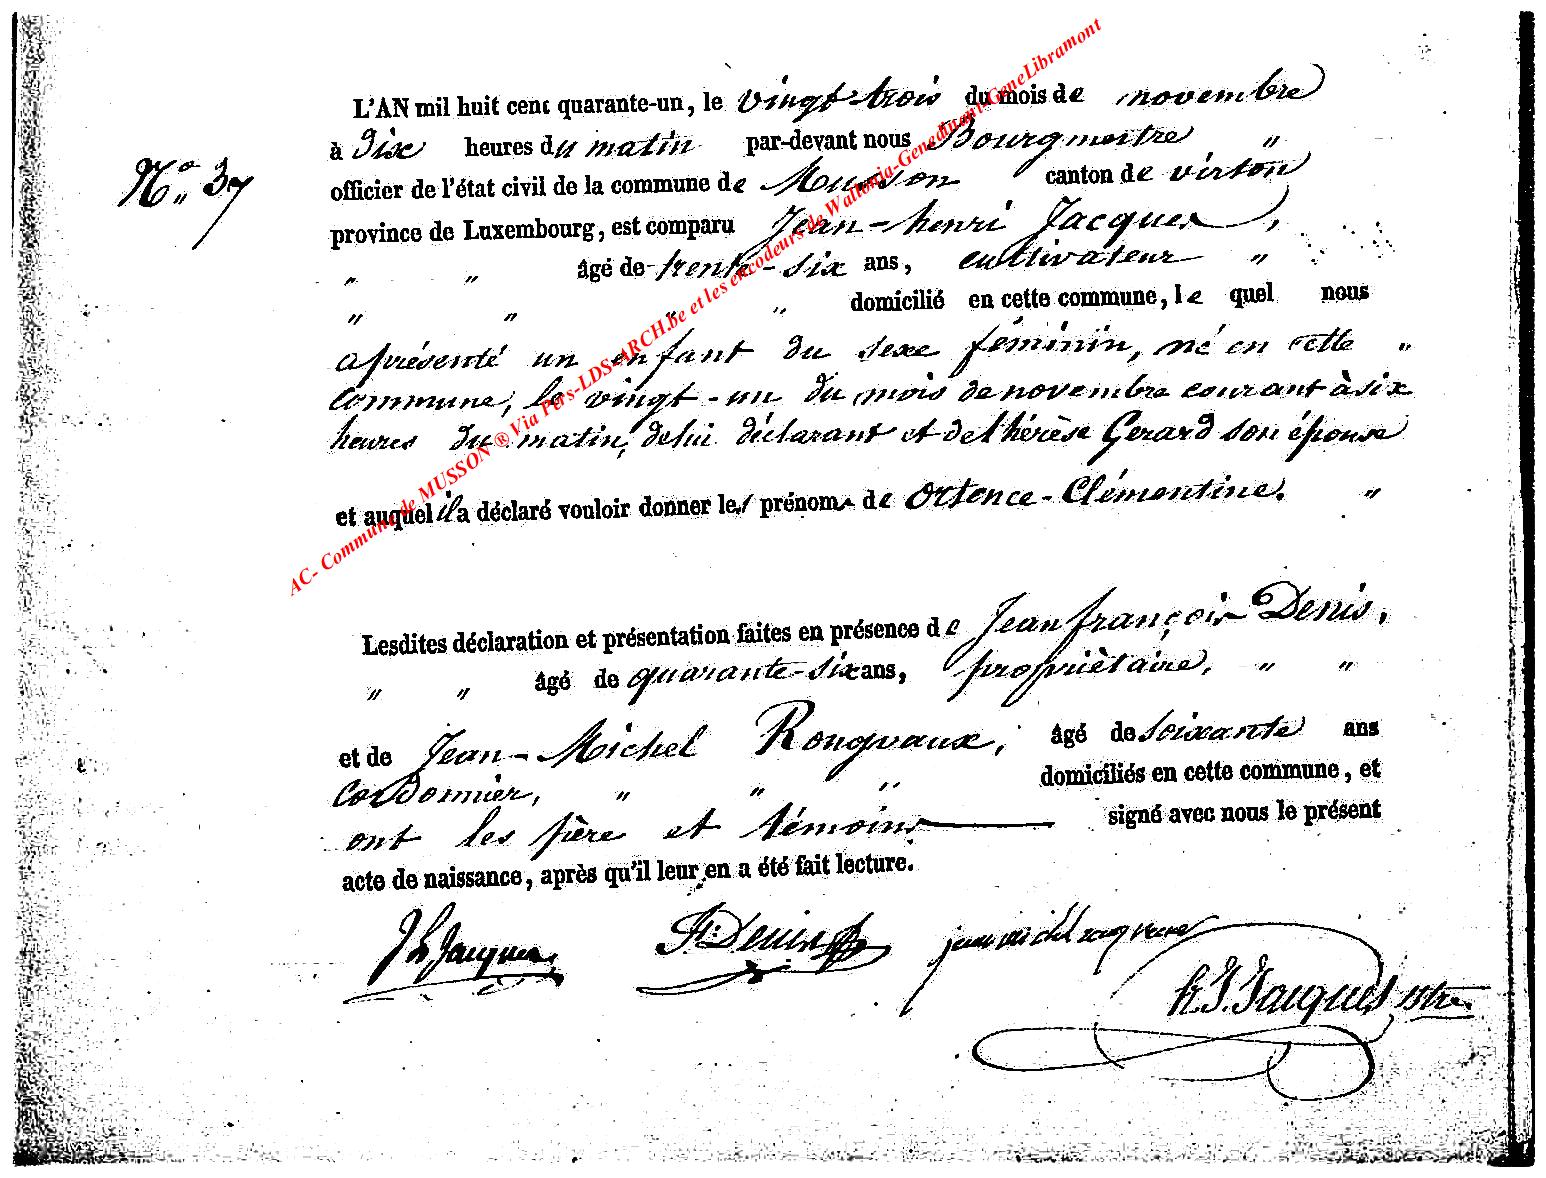 L'AN mil huit cent quarante-un, le vingt-trois du mois de novembre
à Dix heures du matin par-devant nous Bourgmestre "
N.º 37
officier de l'état civil de la commune de Musson canton de virton
province de Luxembourg, est comparu Jean-henri Jacques,
" " âgé de trente-six ans, cultivateur "
" " " " domicilié en cette commune, le quel nous
a présenté un enfant du sexe féminin, né en cette "
commune, le vingt-un du mois de novembre courant à six
heures du matin, de lui déclarant et de thérèse Gerard son épouse
et auquel il a déclaré vouloir donner les prénoms de Ortence-Clémentine. "
Lesdites déclaration et présentation faites en présence de Jean françois Denis,
" " âgé de quarante-six ans, propriètaire, " "
et de Jean-Michel Rongvaux, âgé de soixante ans
Cordonnier, " " " domiciliés en cette commune, et
ont les père et témoins signé avec nous le présent
acte de naissance, après qu'il leur en a été fait lecture.
JhJacques Denis jean michel rongvaux
h. J. Jacques, Bstre.
AC- Commune de MUSSON ® Via Pers-LDS-ARCH.be et les encodeurs de Wallonia-Geneduant-GeneLibramont